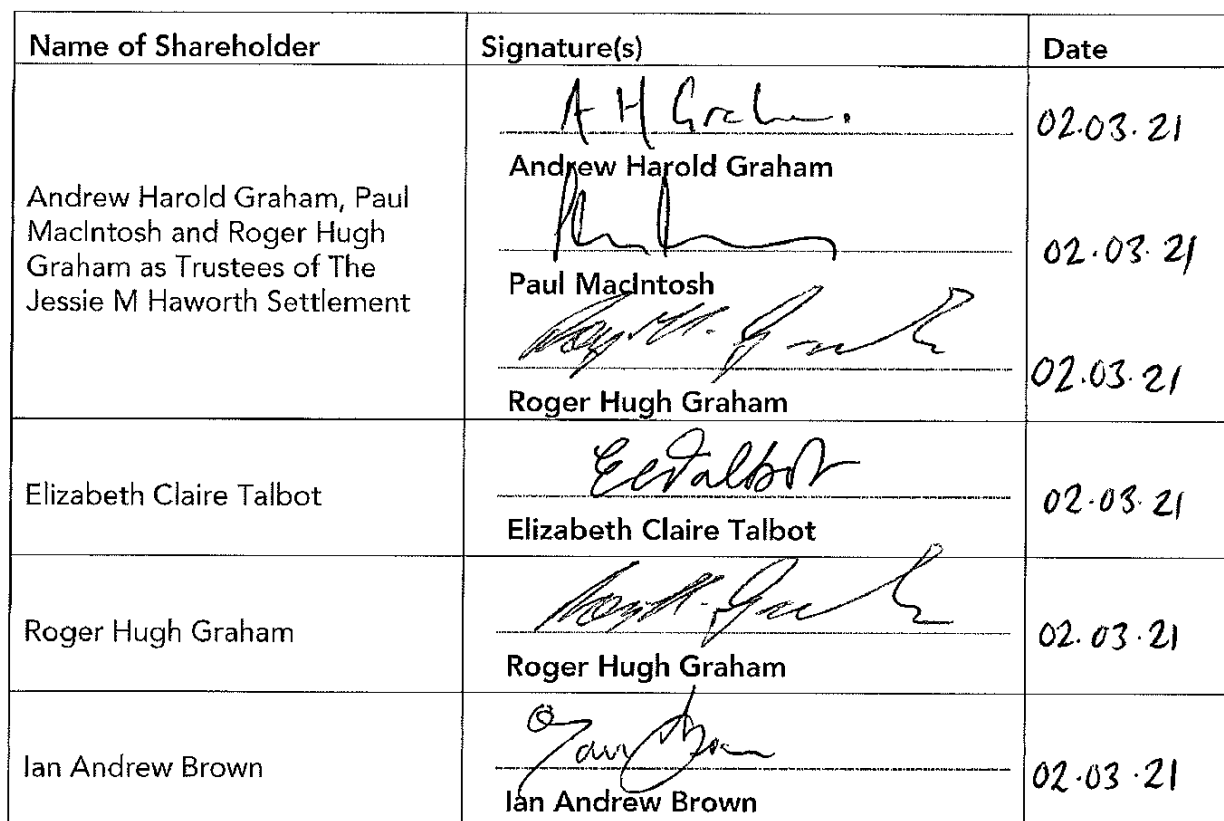 Name of Shareholder
Signature(s)
Date
Andrew Harold Graham, Paul
MacIntosh and Roger Hugh
Graham as Trustees of The
Jessie M Haworth Settlement
A H Graham.
Andrew Harold Graham
02.03.21
Paul MacIntosh
02.03.21
Roger Hugh Graham
02.03.21
Elizabeth Claire Talbot
ECTalbot
Elizabeth Claire Talbot
02.03.21
Roger Hugh Graham
Roger Hugh Graham
02.03.21
Ian Andrew Brown
Ian Brown
Ian Andrew Brown
02.03.21